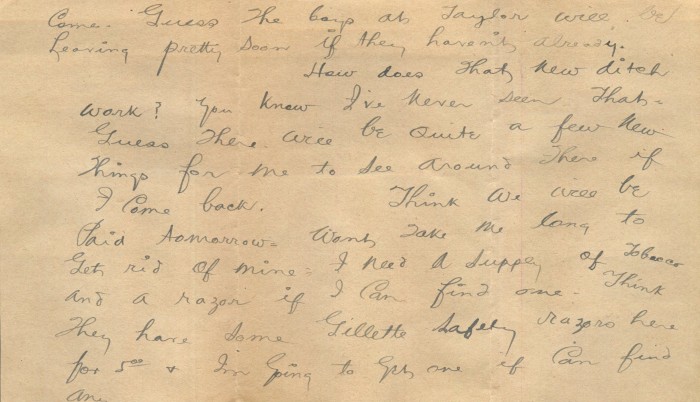 Come. Guess the boys at Taylor will be
Leaving pretty soon if they haven't already.
How does that new ditch
work? You know I've never seen that-
Guess there will be quite a few new
things for me to see around there if
I come back. Think we will be
Paid tomorrow- Wont take me long to
Get rid of mine- I need a supply of Tobacco
and a razor if I can find one- Think
They have some Gillette safety razors here
for 5.00 & I'm going to get one if can find
any